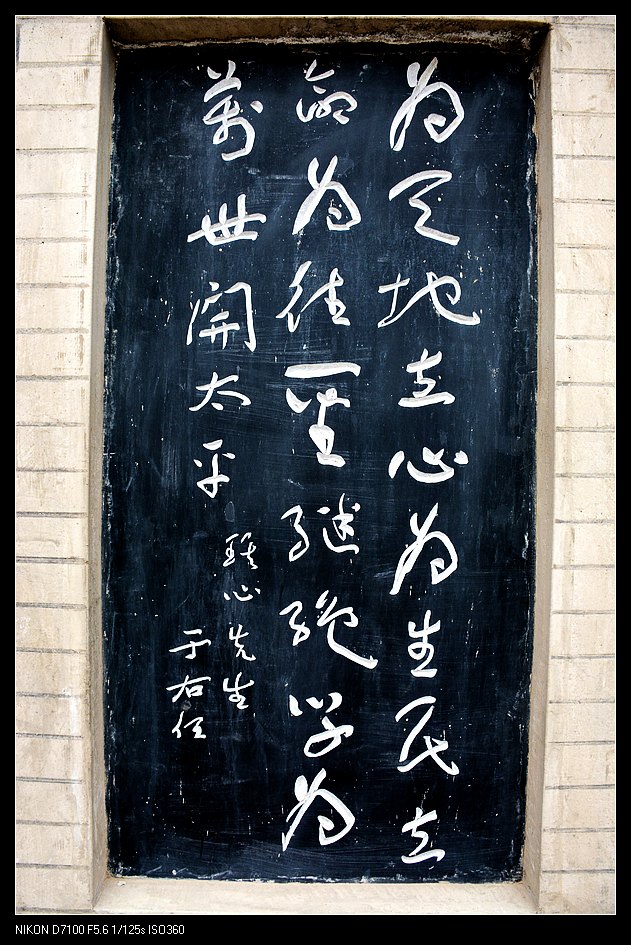 为天地立心为生民立
命为往圣继绝学为
萬世開太平
心先生
于右任
NIKON D7100 F5.6 1/125s ISO360